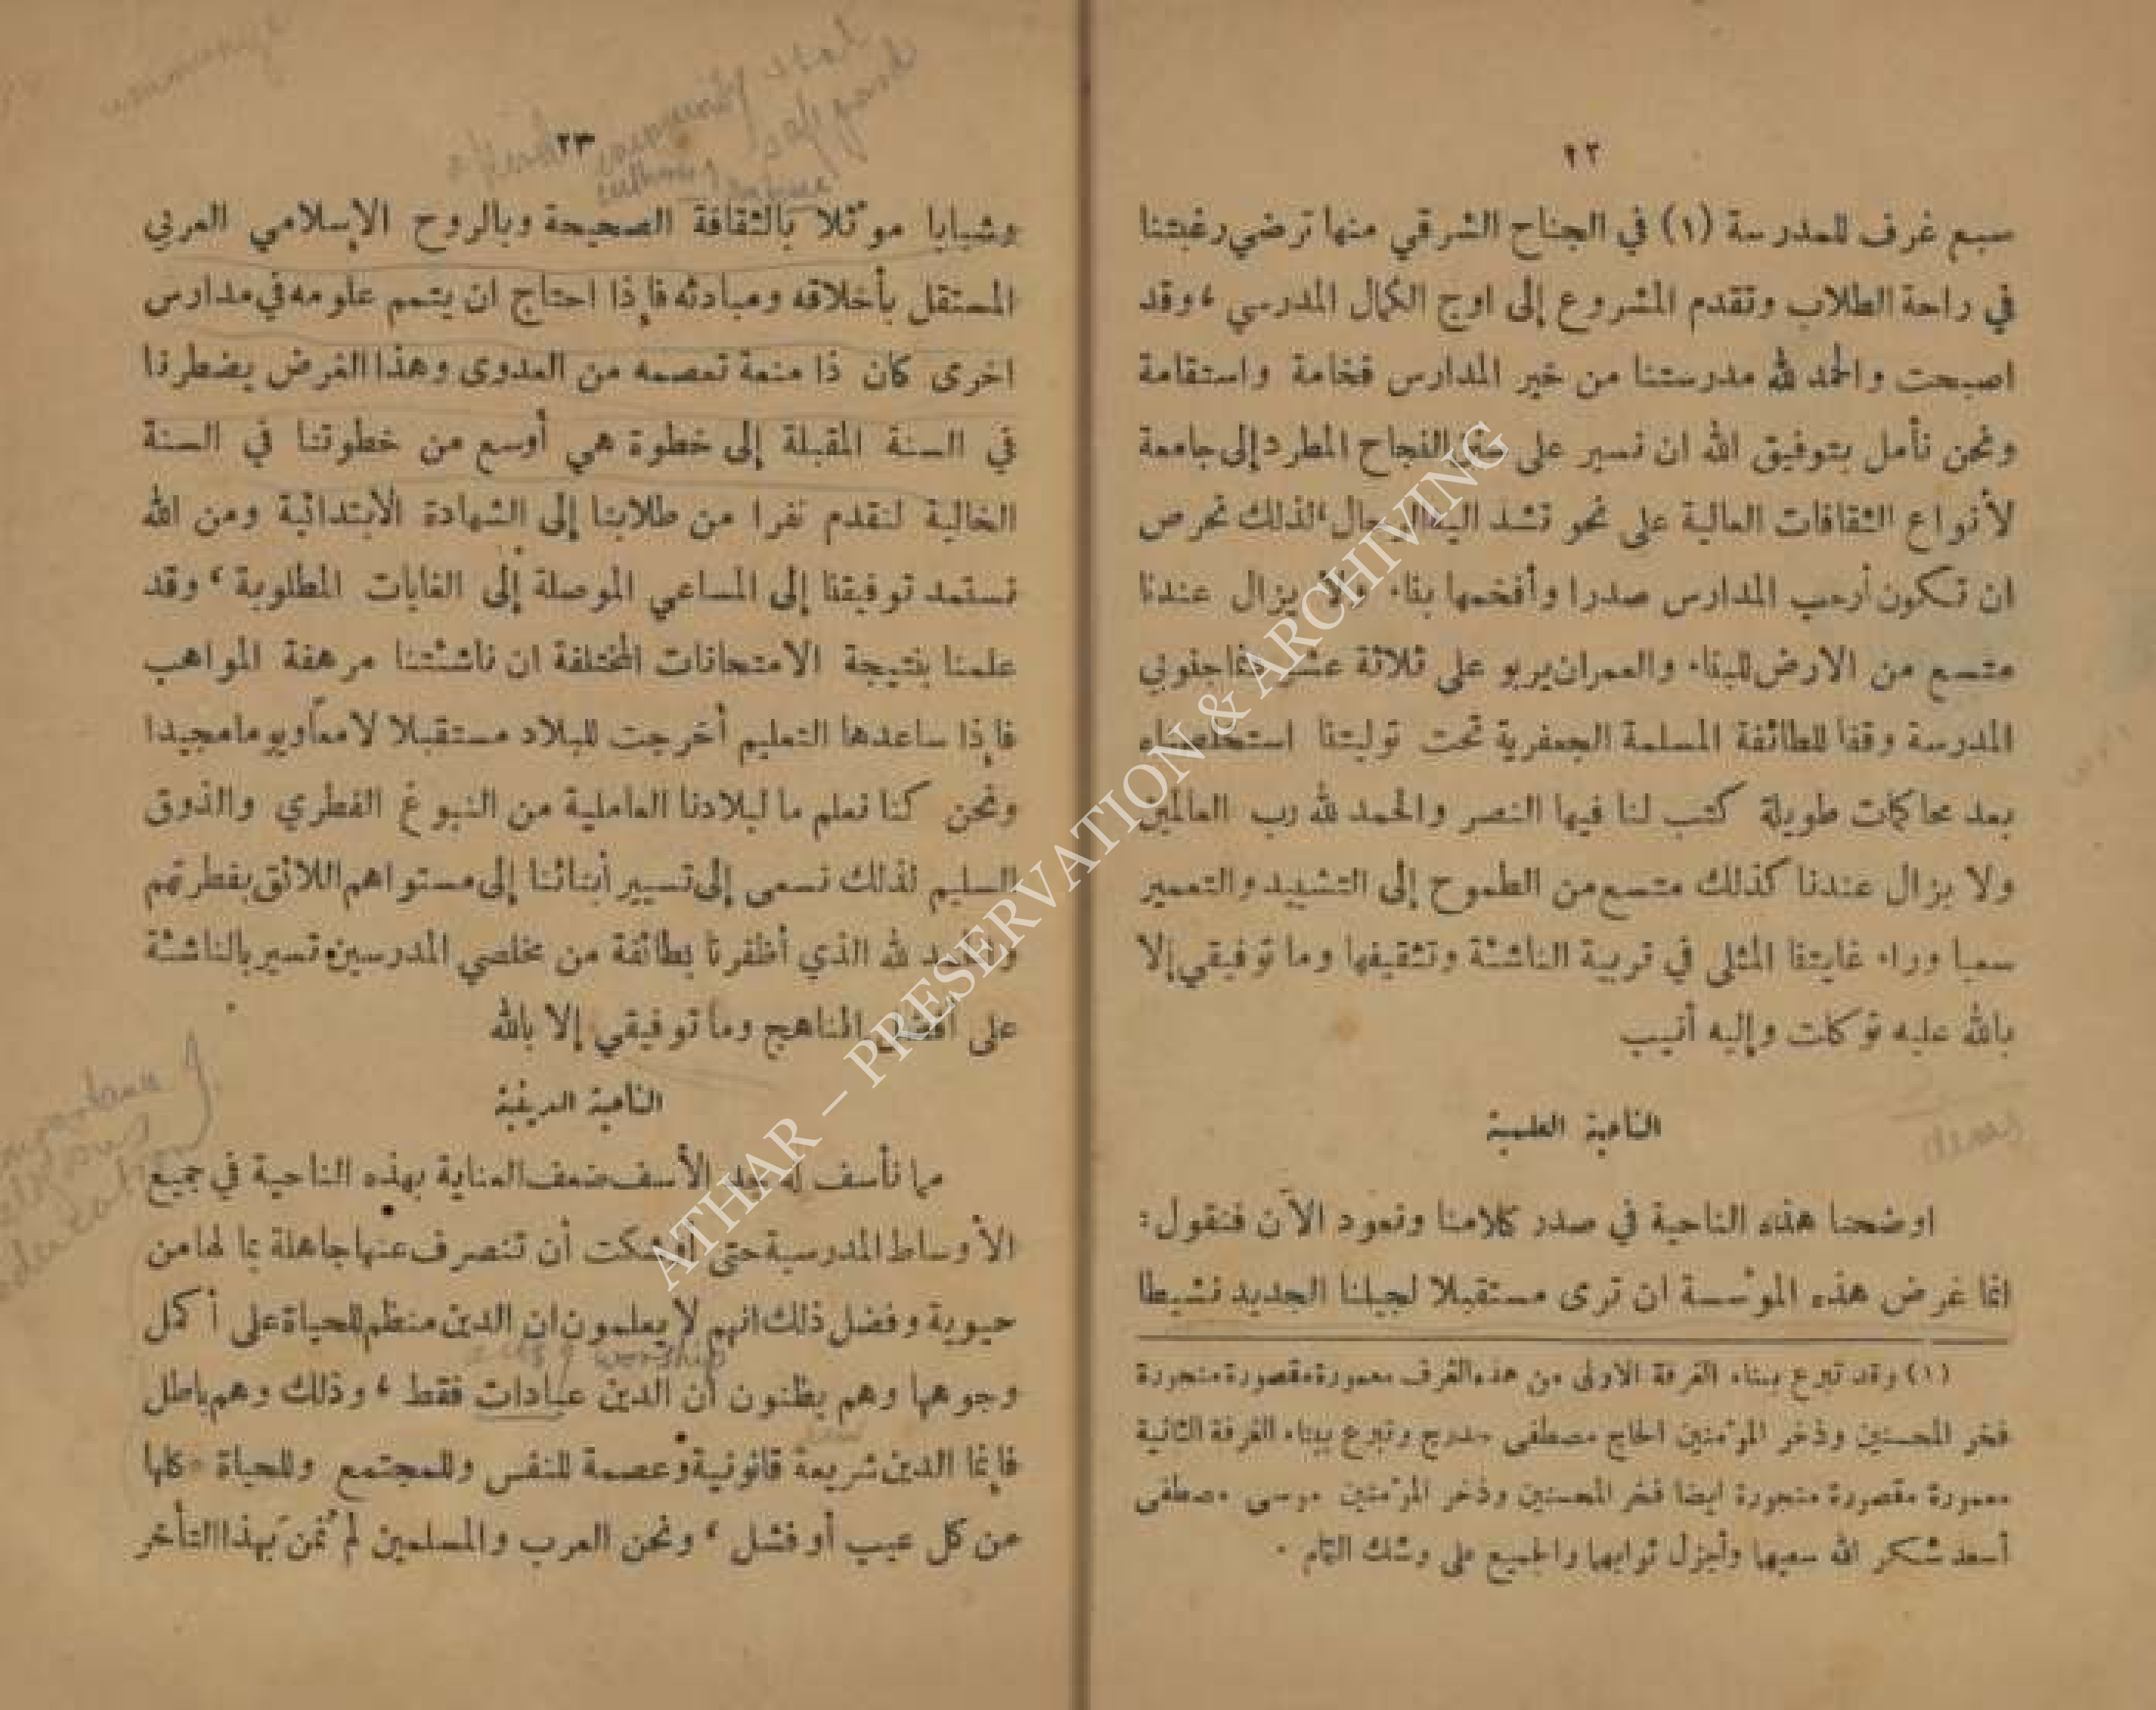 ٢٢
سبع غرف للمدرسة (١) في الجناح الشرقي منها ترضي رغبتنا
في راحة الطلاب وتقدم المشروع إلى اوج الكمال المدرسي ، وقد
اصبحت والحمد لله مدرستنا من خير المدارس فخامة واستقامة
ونحن نأمل بتوفيق الله ان نسير على سنن النجاح المطرد إلى جامعة
لأنواع الثقافات العالية على نحو تشد اليه الرحال ، لذلك نحرص
ان تكون أرحب المدارس صدرا وأفخمها بناء ولا يزال عندنا
متسع من الارض للبناء والعمران يربو على ثلاثة عشر جنوبي
المدرسة وقفا للطائفة المسلمة الجعفرية تحت توليتنا استخلصناه
بعد محاكمات طويلة كتب لنا فيها النصر والحمد لله رب العالمين
ولا يزال عندنا كذلك متسع من الطموح إلى التشييد والتعمير
سعيا وراء غايتنا المثلى في تربية الناشئة وتثقيفها وما توفيقي إلا
بالله عليه توكلت وإليه أنيب
الناحية العلمية
اوضحنا هذه الناحية في صدر كلامنا ونعود الآن فنقول :
انما غرض هذه المؤسسة ان ترى مستقبلا لجيلنا الجديد نشيطا
(١) وقد تبرع ببناء الغرفة الاولى من هذه الغرف معمورة مقصورة منجورة
فخر المحسنين وذخر المؤمنين الحاج مصطفى وتبرع ببناء الغرفة الثانية
معمورة مقصورة منجورة ايضا فخر المحسنين وذخر المؤمنين موسى مصطفى
أسعد شكر الله سعيهما وأجزل ثوابهما والجميع على وشك التمام .
٢٣
وشبابا موثلا بالثقافة الصحيحة وبالروح الإسلامي العربي
المستقل بأخلاقه ومبادئه فإذا احتاج ان يتمم علومه في مدارس
اخرى كان ذا منعة تعصمه من العدوى وهذا الغرض يضطرنا
في السنة المقبلة إلى خطوة هي أوسع من خطوتنا في السنة
الخالية لنقدم نفرا من طلابنا إلى الشهادة الابتدائية ومن الله
نستمد توفيقنا إلى المساعي الموصلة إلى الغايات المطلوبة ، وقد
علمنا بنتيجة الامتحانات المختلفة ان ناشئتنا مرهفة المواهب
فإذا ساعدها التعليم أخرجت للبلاد مستقبلا لامعاً ويوما مجيدا
ونحن كنا نعلم ما لبلادنا العاملية من النبوغ الفطري والذوق
السليم لذلك نسعى إلى تسيير أبنائنا إلى مستواهم اللائق بفطرتهم
والحمد لله الذي أظفرنا بطائفة من مخلصي المدرسين تسير بالناشئة
على افضل المناهج وما توفيقي إلا بالله
الناحية الدينية
مما نأسف له جد الأسف ضعف العناية بهذه الناحية في جميع
الأوساط المدرسية حتى أوشكت أن تنصرف عنها جاهلة بما لها من
حيوية وفضل ذلك انهم لا يعلمون ان الدين منظم للحياة على أكمل
acts of worship
وجوهها وهم يظنون ان الدين عبادات فقط ، وذلك وهم باطل
law
فإنما الدين شريعة قانونية وعصمة للنفس وللمجتمع وللحياة كلها
من كل عيب أو فشل ، ونحن العرب والمسلمين لم نمن بهذا التأخر
community
safeguard
importance of
religious
education
ATHAR – PRESERVATION & ARCHIVING